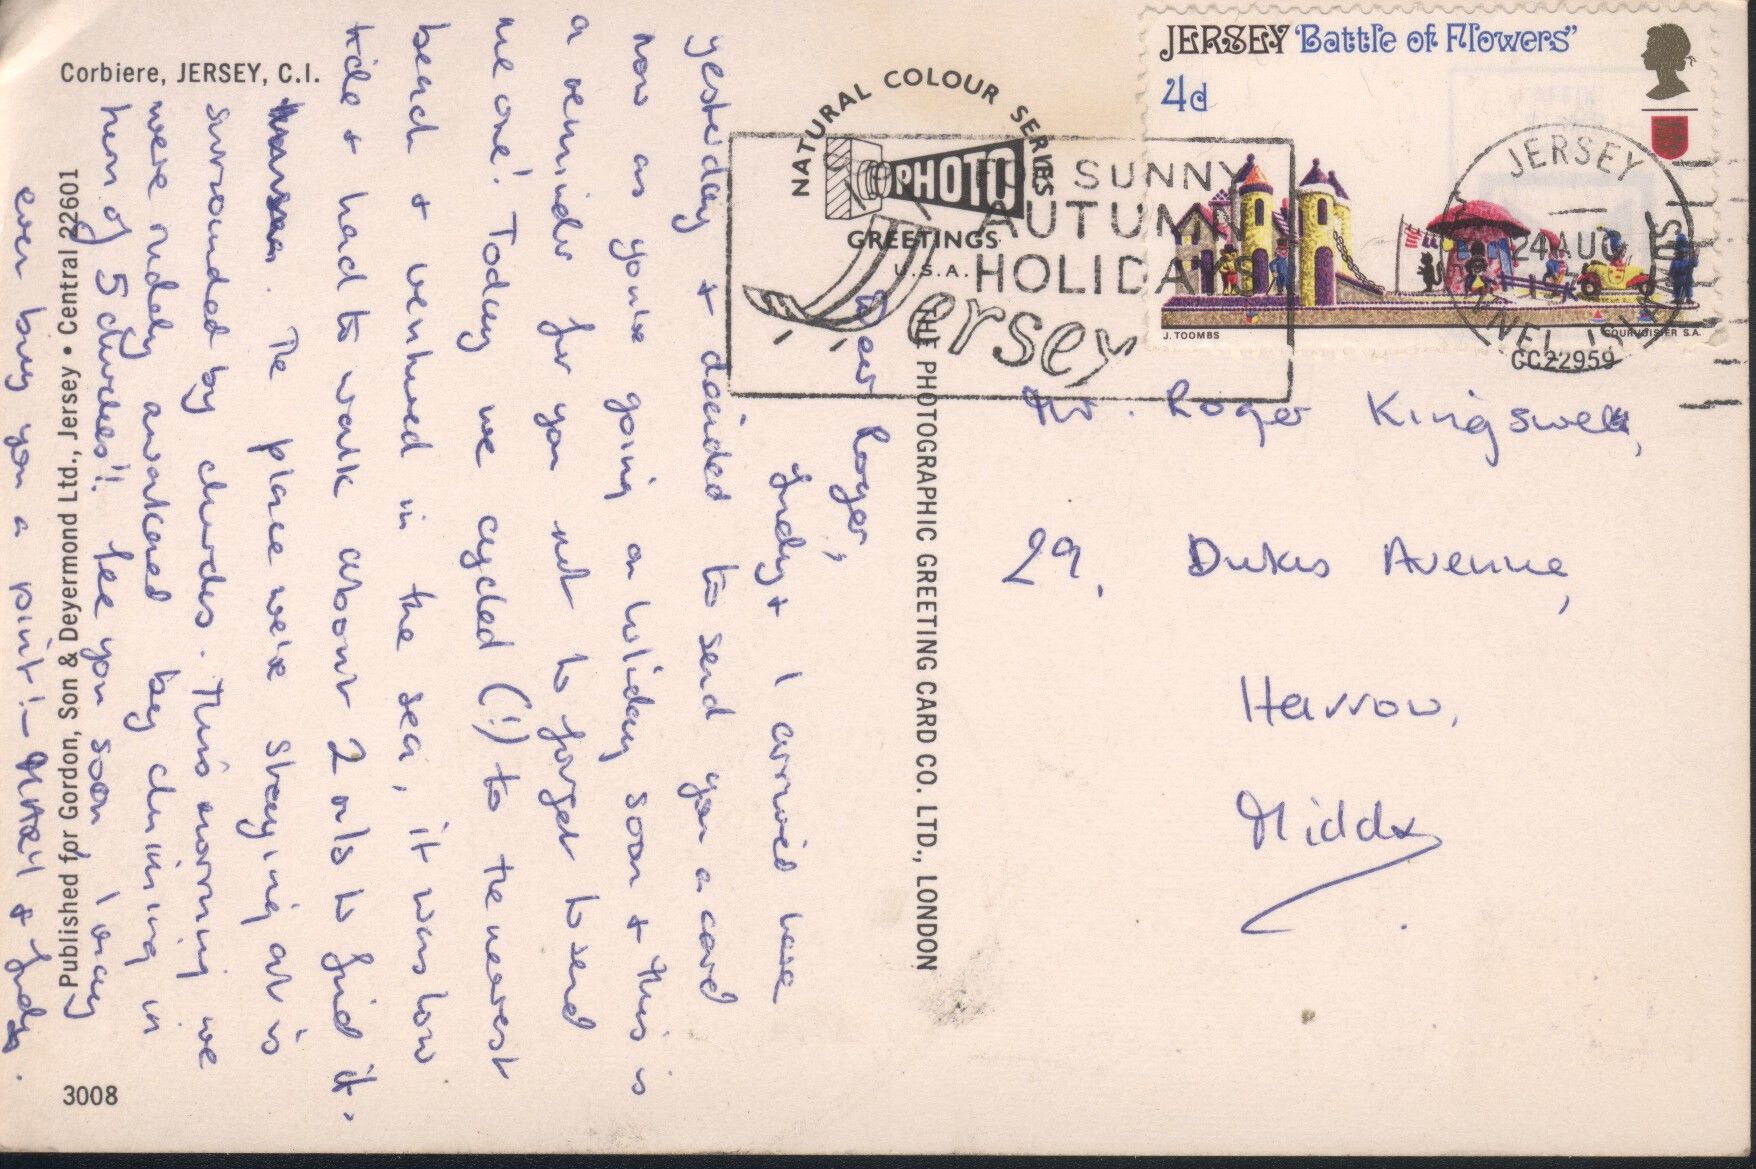 Corbiere, JERSEY, C.I.
NATURAL COLOUR SERIES
PHOTO
GREETINGS
U.S.A.
SUNNY
AUTUMN
HOLIDAYS
Jersey
JERSEY "Battle of Flowers"
4d
J. TOOMBS
COURVOISIER S.A.
JERSEY
24 AUG
CHANNEL ISLANDS
CC22959
Dear Roger,
Judy + I arrived here
yesterday + decided to send you a card
now as you're going on holiday soon + this is
a reminder for you not to forget to send
me one! Today we cycled (!) to the nearest
beach + ventured in the sea, it was low
tide + had to walk about 2 mls to find it.
The place we're staying at is
surrounded by churches. This morning we
were rudely awakened by chiming in
hem of 5 churches!! See you soon I may
even buy you a pint! - MARY & Judy.
Mr. Roger Kingswell,
29, Dukes Avenue,
Harrow,
Middx.
THE PHOTOGRAPHIC GREETING CARD CO. LTD., LONDON
Published for Gordon, Son & Deyermond Ltd., Jersey • Central 22601
3008